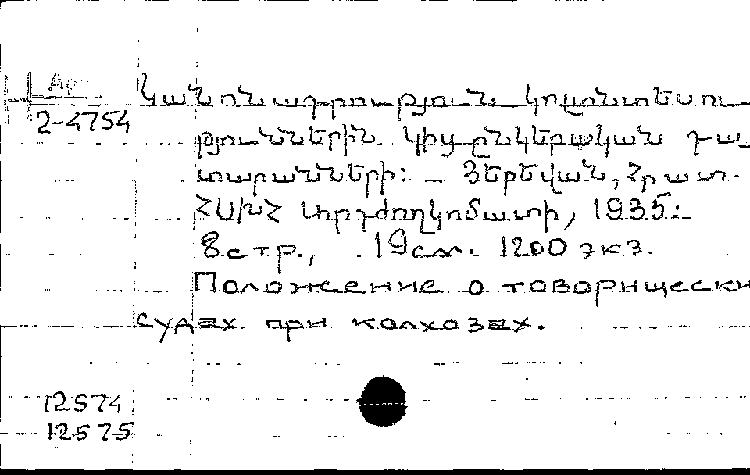 Ар
2-4754
Կանոնադրություն կոլտնտեսու
թյուններին կից ընկերական դա
տարանների: – Յերեվան, Հրատ.
ՀՍԽՀ Արդժողկոմատի, 1935:
8 стр., 19 см. 1200 экз.
Положение о товорищески
судах при колхозах.
12574
12575